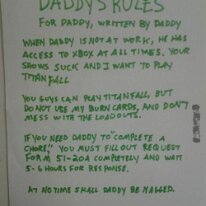 DADDY'S RULES
FOR DADDY, WRITTEN BY DADDY
WHEN DADDY IS NOT AT WORK, HE HAS
ACCESS TO XBOX AT ALL TIMES. YOUR
SHOWS SUCK AND I WANT TO PLAY
TITANFALL
YOU GUYS CAN PLAY TITANFALL, BUT
DO NOT USE MY BURN CARDS, AND DON'T
MESS WITH THE LOADOUTS.
IF YOU NEED DADDY TO "COMPLETE A
CHORE," YOU MUST FILL OUT REQUEST
FORM 51-20A COMPLETELY AND WAIT
5-6 HOURS FOR RESPONSE.
AT NO TIME SHALL DADDY BE NAGGED.